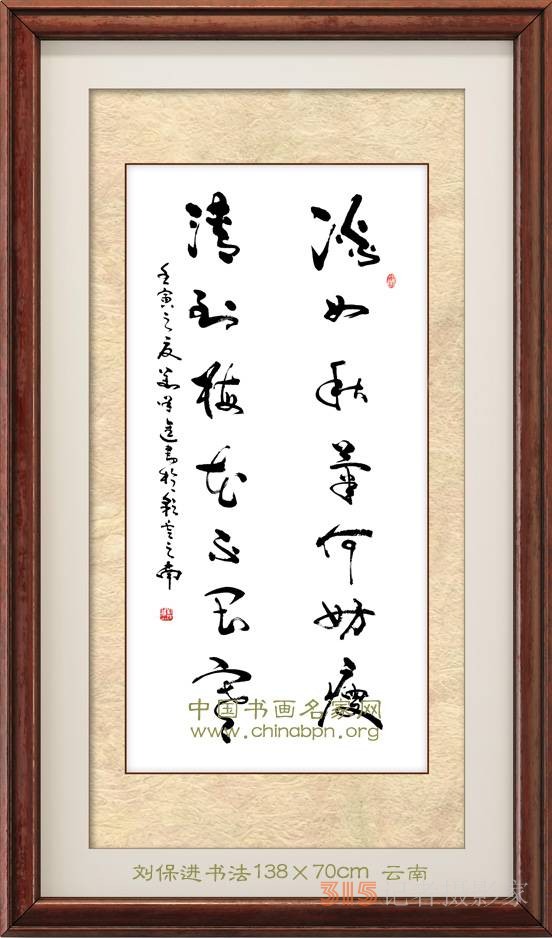 淡如秋菊何妨瘦
清到梅花不畏寒
壬寅之夏劉保進書於彩云之南
中国书画名家网
www.chinabpn.org
刘保进书法138×70cm 云南
315记者摄影家